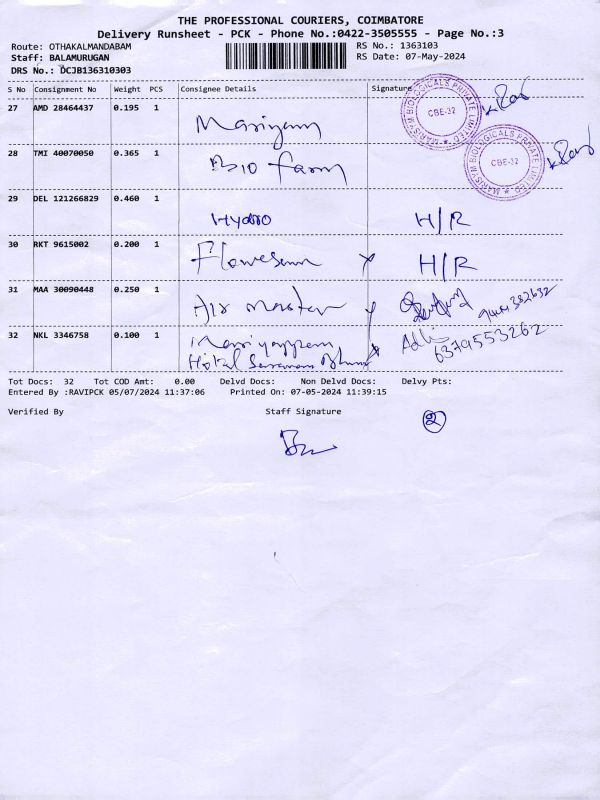 THE PROFESSIONAL COURIERS, COIMBATORE
Delivery Runsheet - PCK - Phone No.:0422-3505555 - Page No.:3
Route: OTHAKALMANDABAM
RS No.: 1363103
Staff: BALAMURUGAN
RS Date: 07-May-2024
DRS No.: DCJB136310303
S No Consignment No Weight PCS Consignee Details Signature
27 AMD 28464437 0.195 1
MARISYM BIOLOGICALS PRIVATE LIMITED
CBE-32
28 TMI 40070050 0.365 1 Bio farm
MARISYM BIOLOGICALS PRIVATE LIMITED
CBE-32
29 DEL 121266829 0.460 1 Hydro H/R
30 RKT 9615002 0.200 1 H/R
31 MAA 30090448 0.250 1 Air Master
32 NKL 3346758 0.100 1 Kariyappan
Hotal
6379553262
Tot Docs: 32 Tot COD Amt: 0.00 Delvd Docs: Non Delvd Docs: Delvy Pts:
Entered By :RAVIPCK 05/07/2024 11:37:06 Printed On: 07-05-2024 11:39:15
Verified By Staff Signature
2